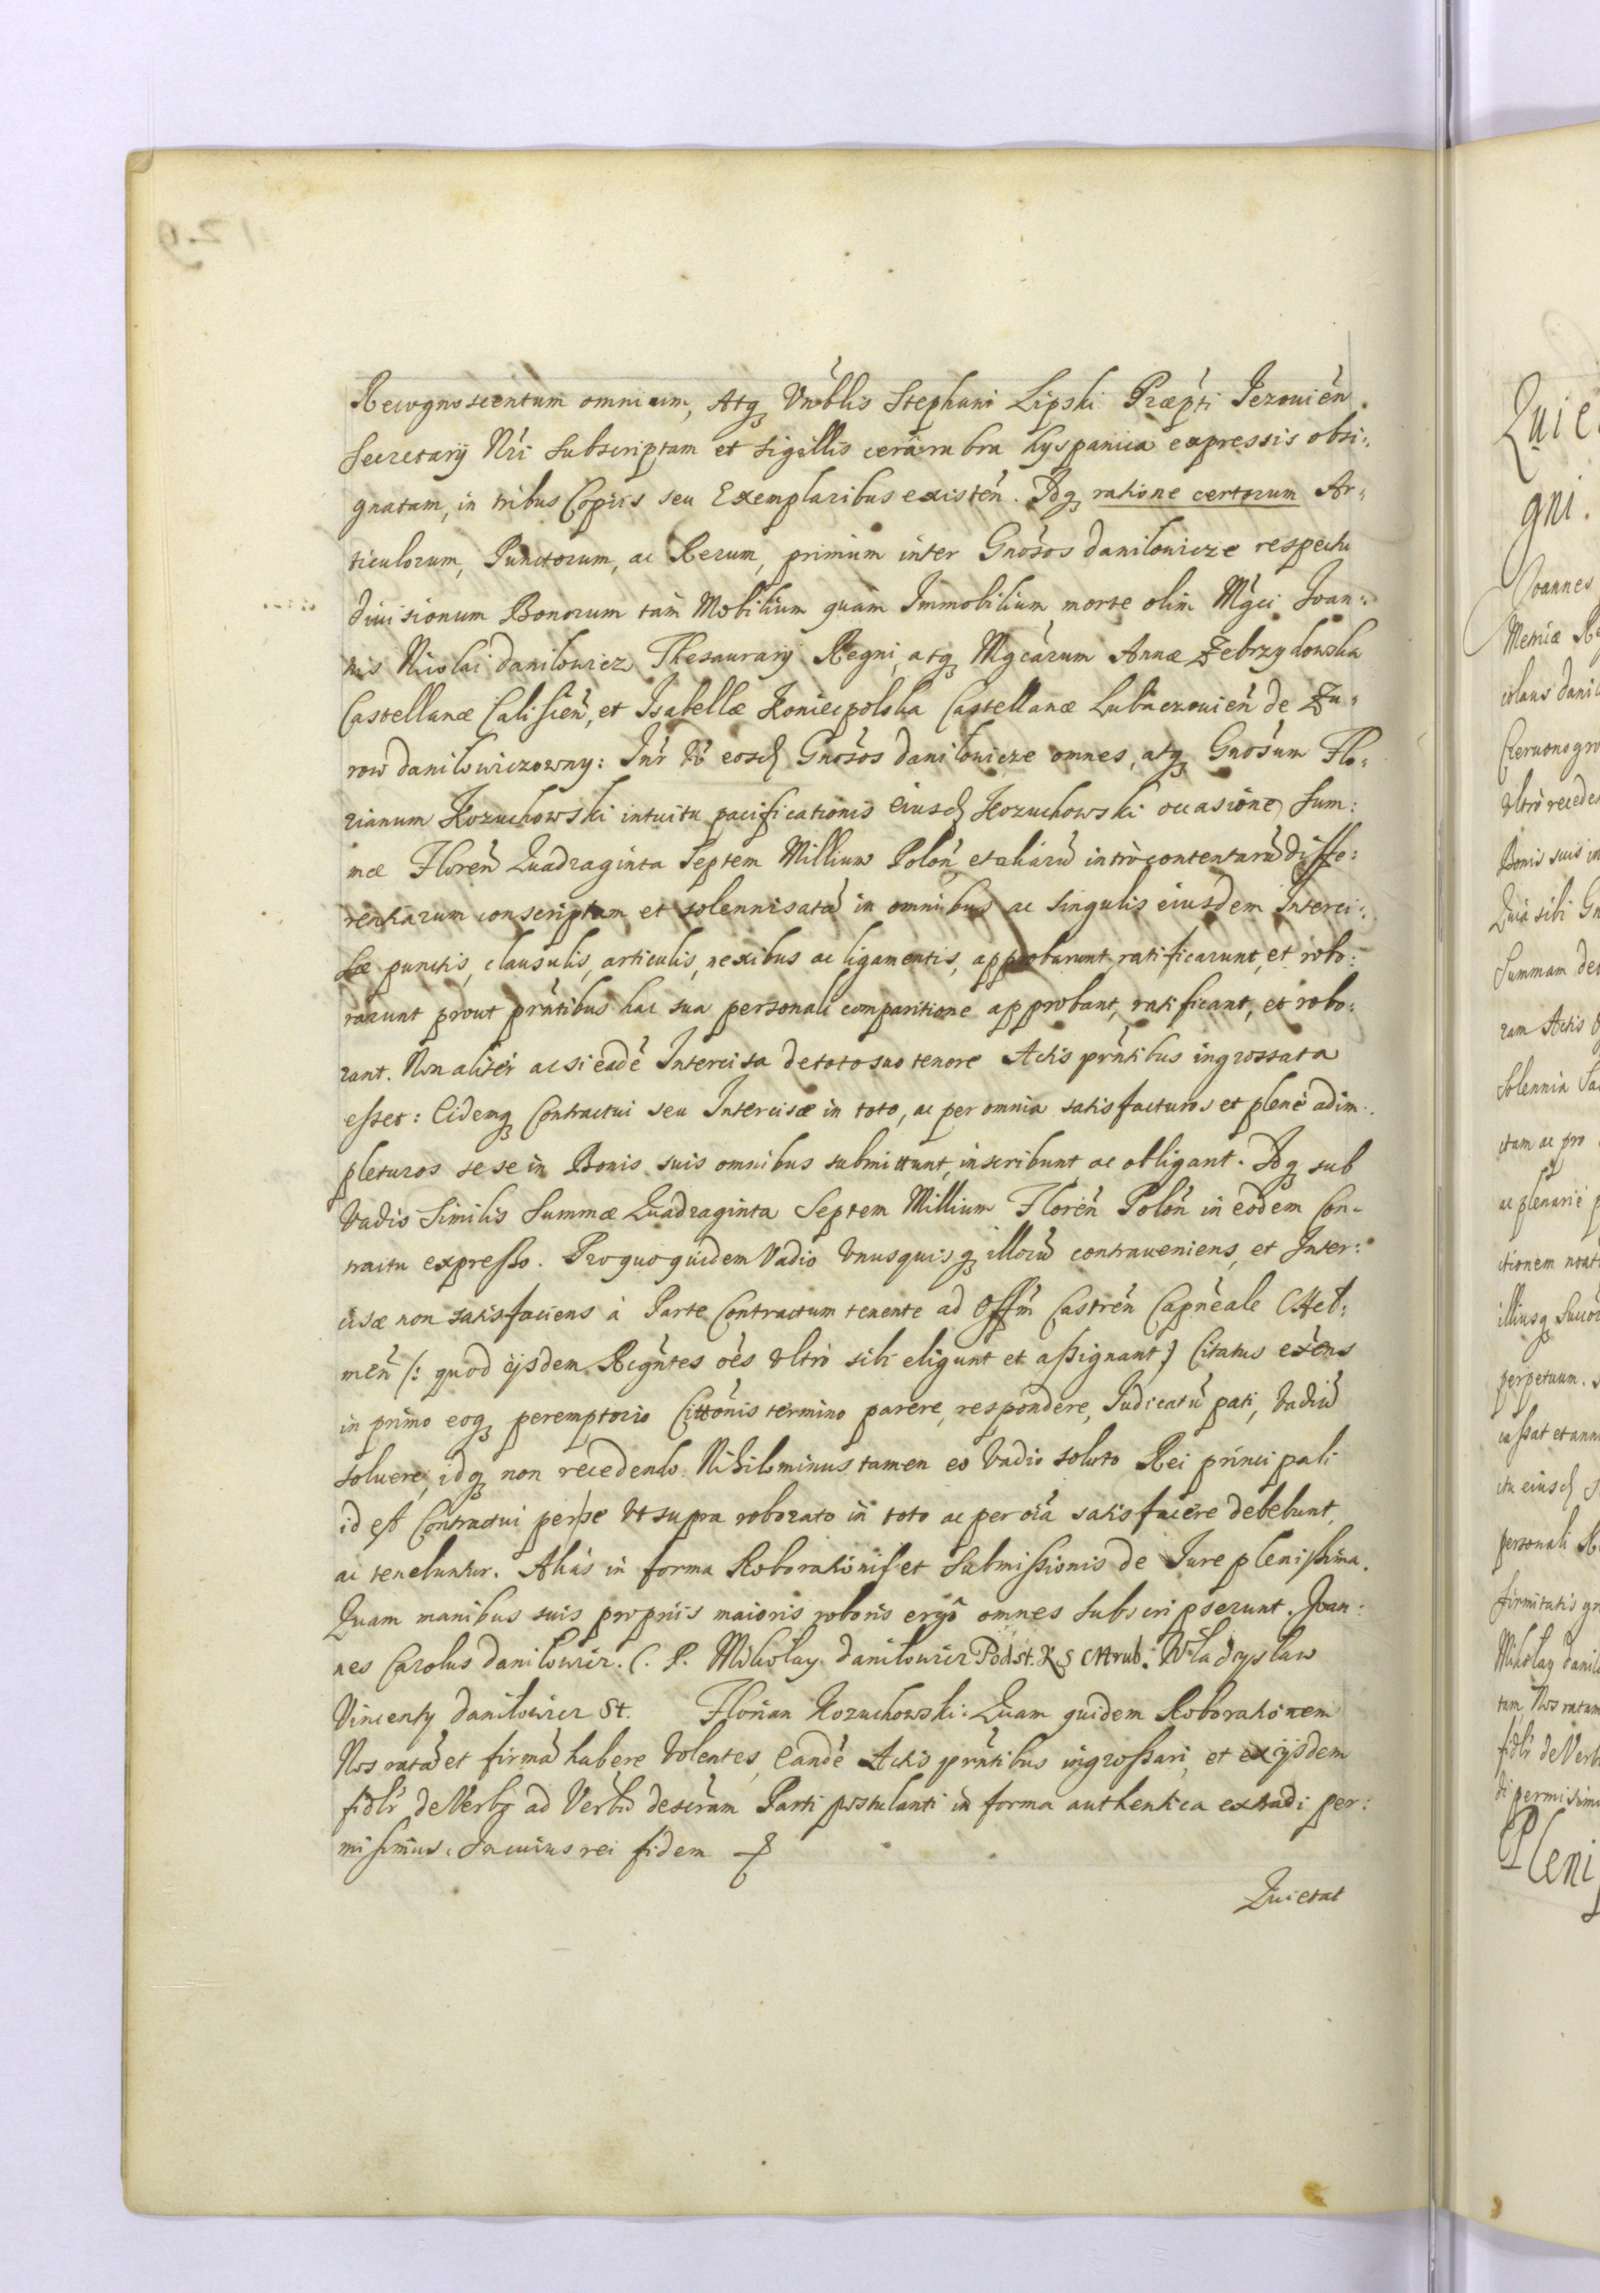 Recognoscentum omnium, Atq Vnoblis Stephani Lipski Præpti Jezouien
Secretarij Nri Subscriptam et Sigillis cera rubra hyspanica expressis obsi:
gnatam, in tribus Copijs seu Exemplaribus existen. Idq ratione certorum Ar:
ticulorum, Punctorum, ac Rerum, primum inter Gnosos Danilowicze respectu
diuisionum Bonorum tam Mobilium quam Immobilium morte olim Mgci Joan:
nis Nicolai Danilowicz Thesaurarij Regni, atq Mgcarum Annæ Zebrzydowska
Castellanæ Calissien, et Isabellæ Koniecpolska Castellanæ Lubaczouien de Zu:
row Danilowiczowny: Intr et eosd Gnosos Danilowicze omnes, atq Gnosum Flo:
rianum Kozuchowski intuitu pacificationis eiusd Kozuchowski occasione Sum:
mæ Floren Quadraginta Septem Millium Polon et aliaru intro contentaru diffe:
rentiarum conscriptam et solennisata in omnibus ac singulis eiusdem Interci:
sæ punctis, clausulis, articulis, nexibus ac ligamentis, approbarunt ratificarunt, et robo:
rarunt prout prntibus hac sua personali comparitione approbant, ratificant, et robo:
rant. Non aliter ac si eade Intercisa de toto suo tenore Actis prntibus ingrossata
esset: Eidemq Contractui seu Intercisæ in toto, ac per omnia satisfacturos et plene adim:
pleturos sese in Bonis suis omnibus submittunt, inscribunt ac obligant. Idq sub
Vadio Similis Summæ Quadraginta Septem Millium Floren Polon in eodem Con-
tractu expresso. Pro quo quidem Vadio Vnusquisq illoru contraueniens, et Inter:
cisæ non satisfaciens à Parte Contractum tenente ad Offm Castren Capneale Chel:
men (: quod ijsdem Recgntes oes vltro sibi eligunt et assignant :) Citatus exens
in primo eoq peremptorio Cittonis termino parere, respondere, Judicatu pati, Vadiu
soluere, idq non recedendo. Nihilominus tamen eo Vadio soluto Rei principali
id est Contractui per se vt supra roborato in toto ac per oia satisfacere debebunt,
ac tenebuntur. Alias in forma Roborationis et Submissionis de Jure plenissima.
Quam manibus suis proprijs maioris roboris ergo omnes subscripserunt. Joan:
nes Carolus Danilowicz. C. P. Mikolay Danilowicz Podst. K S Chrub. Wladyslaw
Vincenty Danilowicz St. Florian Kozuchowski. Quam quidem Roborationem
Nos rata et firma habere Volentes, Eande Actis prntibus ingrossari, et ex ijsdem
fidlr de Verbo ad Verbu descram Parti postulanti in forma authentica extradi per:
misimus. In cuius rei fidem
Quietat